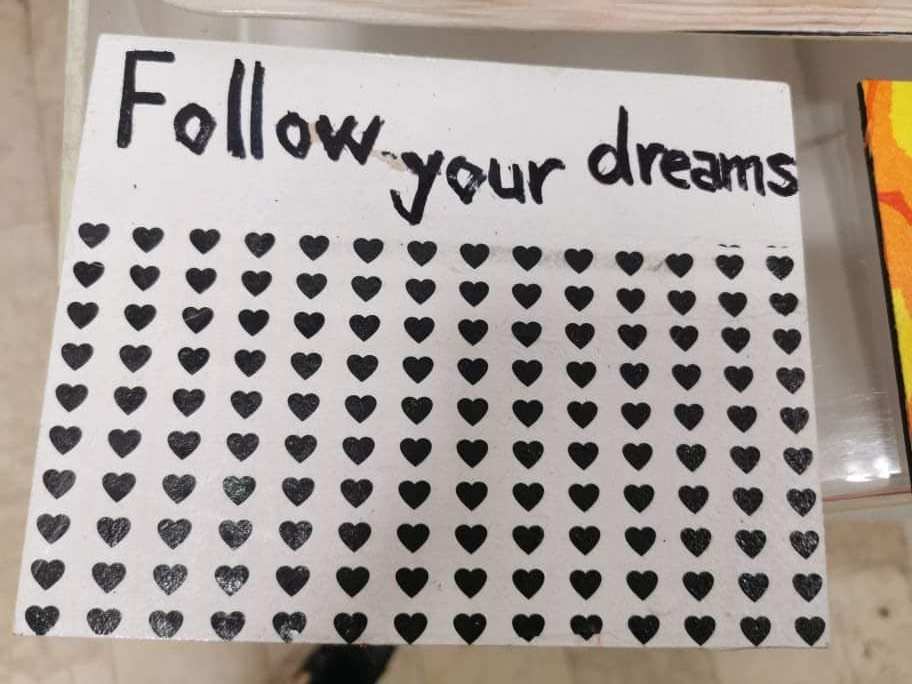 Follow your dreams